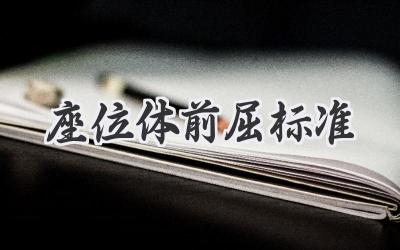 座位体前屈标准